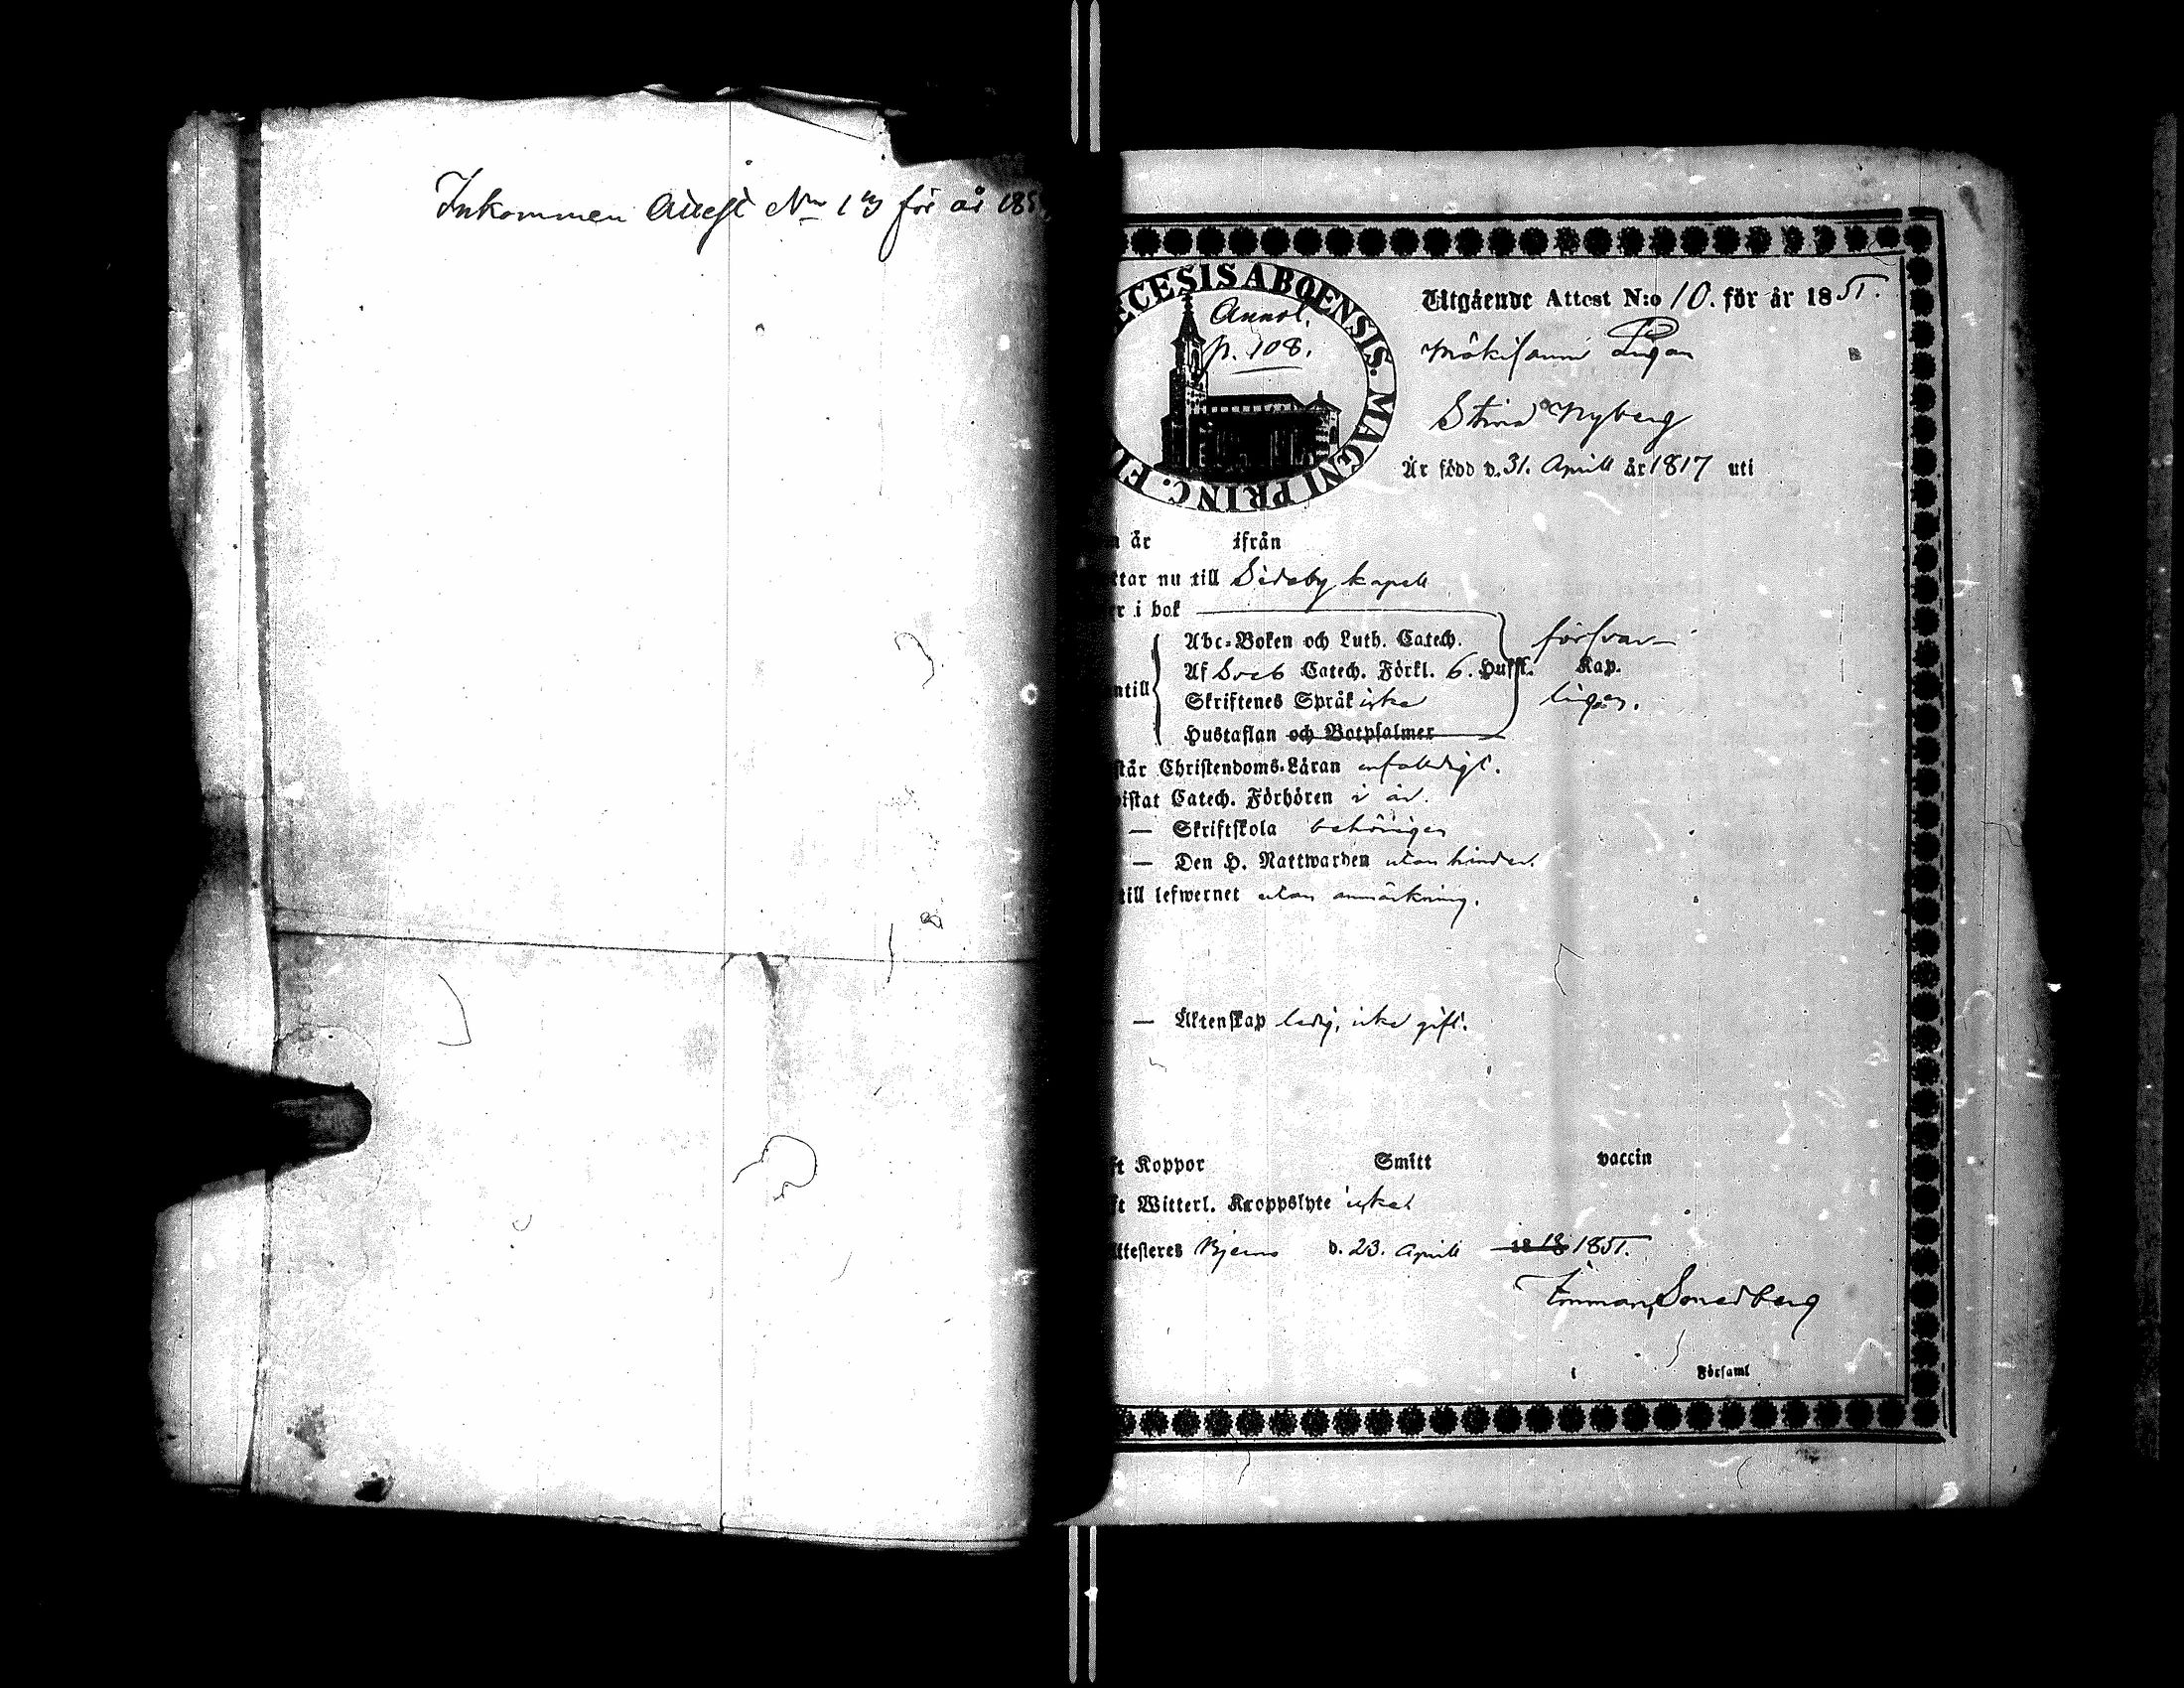 Inkommen Attest No 13 för år 185
ECESIS ABOENSIS. MAGNI PRINC. FI
Annot.
p. 108.
Utgående Attest N:o 10. för år 1851.
Pigan
Stina Nyberg
Är född d. 31. Aprill år 1817 uti
år ifrån
ttar nu till Sideby kapell
r i bok
Abc-Boken och Luth. Catech. försvar-
Af Sveb Catech. Förkl. 6. Huffst. Kap.
ntill Skriftenes Språk icke ligen.
Hustaflan och Botpsalmer
står Christendoms-Läran enfaldigt.
istat Catech. Förhören i år.
— Skriftskola behörigen
— Den H. Nattwarden utan hinder.
till lefwernet utan anmärkning.
— Äktenskap ledig, icke gift.
ft Koppor Smitt vaccin
ft Witterl. Kroppslyte icke
Attesteres Bjerno d. 23. Aprill 18 1851.
i Församl